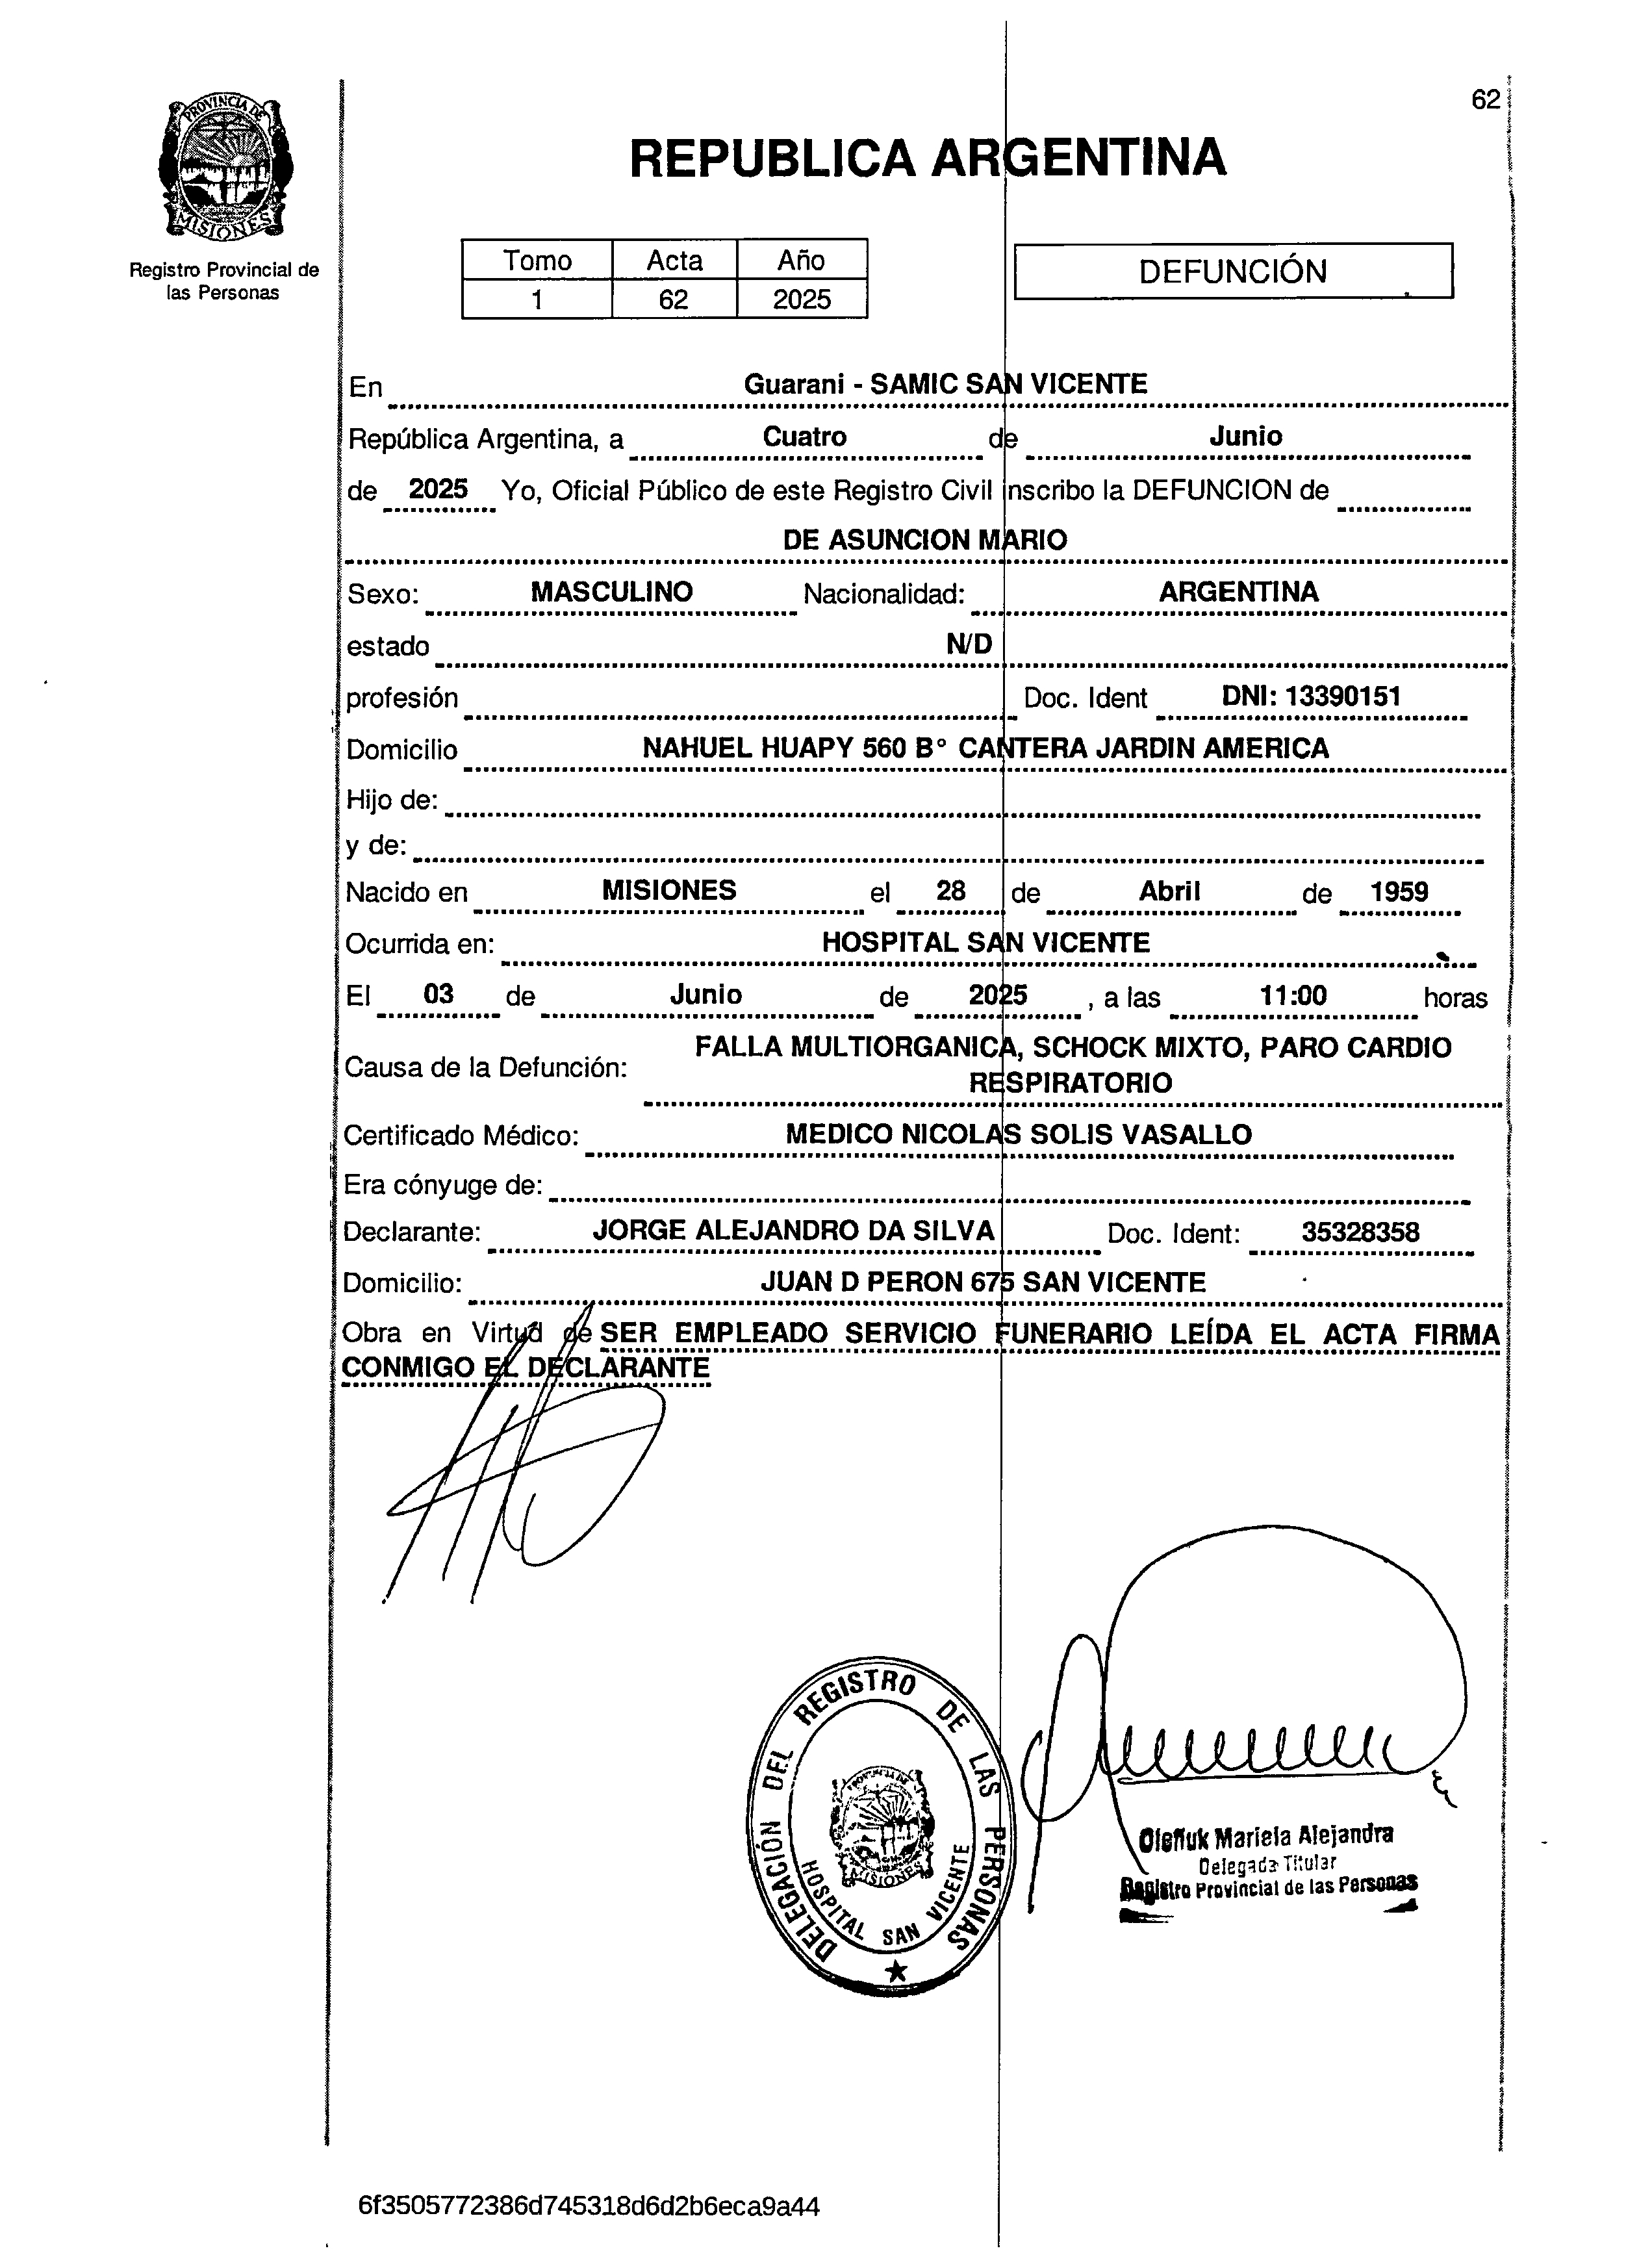 62
PROVINCIA DE
MISIONES
Registro Provincial de
las Personas
REPUBLICA ARGENTINA
Tomo Acta Año
1 62 2025
DEFUNCIÓN
En Guarani - SAMIC SAN VICENTE
República Argentina, a Cuatro de Junio
de 2025 Yo, Oficial Público de este Registro Civil inscribo la DEFUNCION de
DE ASUNCION MARIO
Sexo: MASCULINO Nacionalidad: ARGENTINA
estado N/D
profesión Doc. Ident DNI: 13390151
Domicilio NAHUEL HUAPY 560 B° CANTERA JARDIN AMERICA
Hijo de:
y de:
Nacido en MISIONES el 28 de Abril de 1959
Ocurrida en: HOSPITAL SAN VICENTE
El 03 de Junio de 2025 , a las 11:00 horas
Causa de la Defunción: FALLA MULTIORGANICA, SCHOCK MIXTO, PARO CARDIO
RESPIRATORIO
Certificado Médico: MEDICO NICOLAS SOLIS VASALLO
Era cónyuge de:
Declarante: JORGE ALEJANDRO DA SILVA Doc. Ident: 35328358
Domicilio: JUAN D PERON 675 SAN VICENTE
Obra en Virtud de SER EMPLEADO SERVICIO FUNERARIO LEÍDA EL ACTA FIRMA
CONMIGO EL DECLARANTE
DELEGACIÓN DEL REGISTRO DE LAS PERSONAS
PROVINCIA DE
MISIONES
HOSPITAL SAN VICENTE
Mariela Alejandra
Delegada Titular
Registro Provincial de las Personas
6f3505772386d745318d6d2b6eca9a44